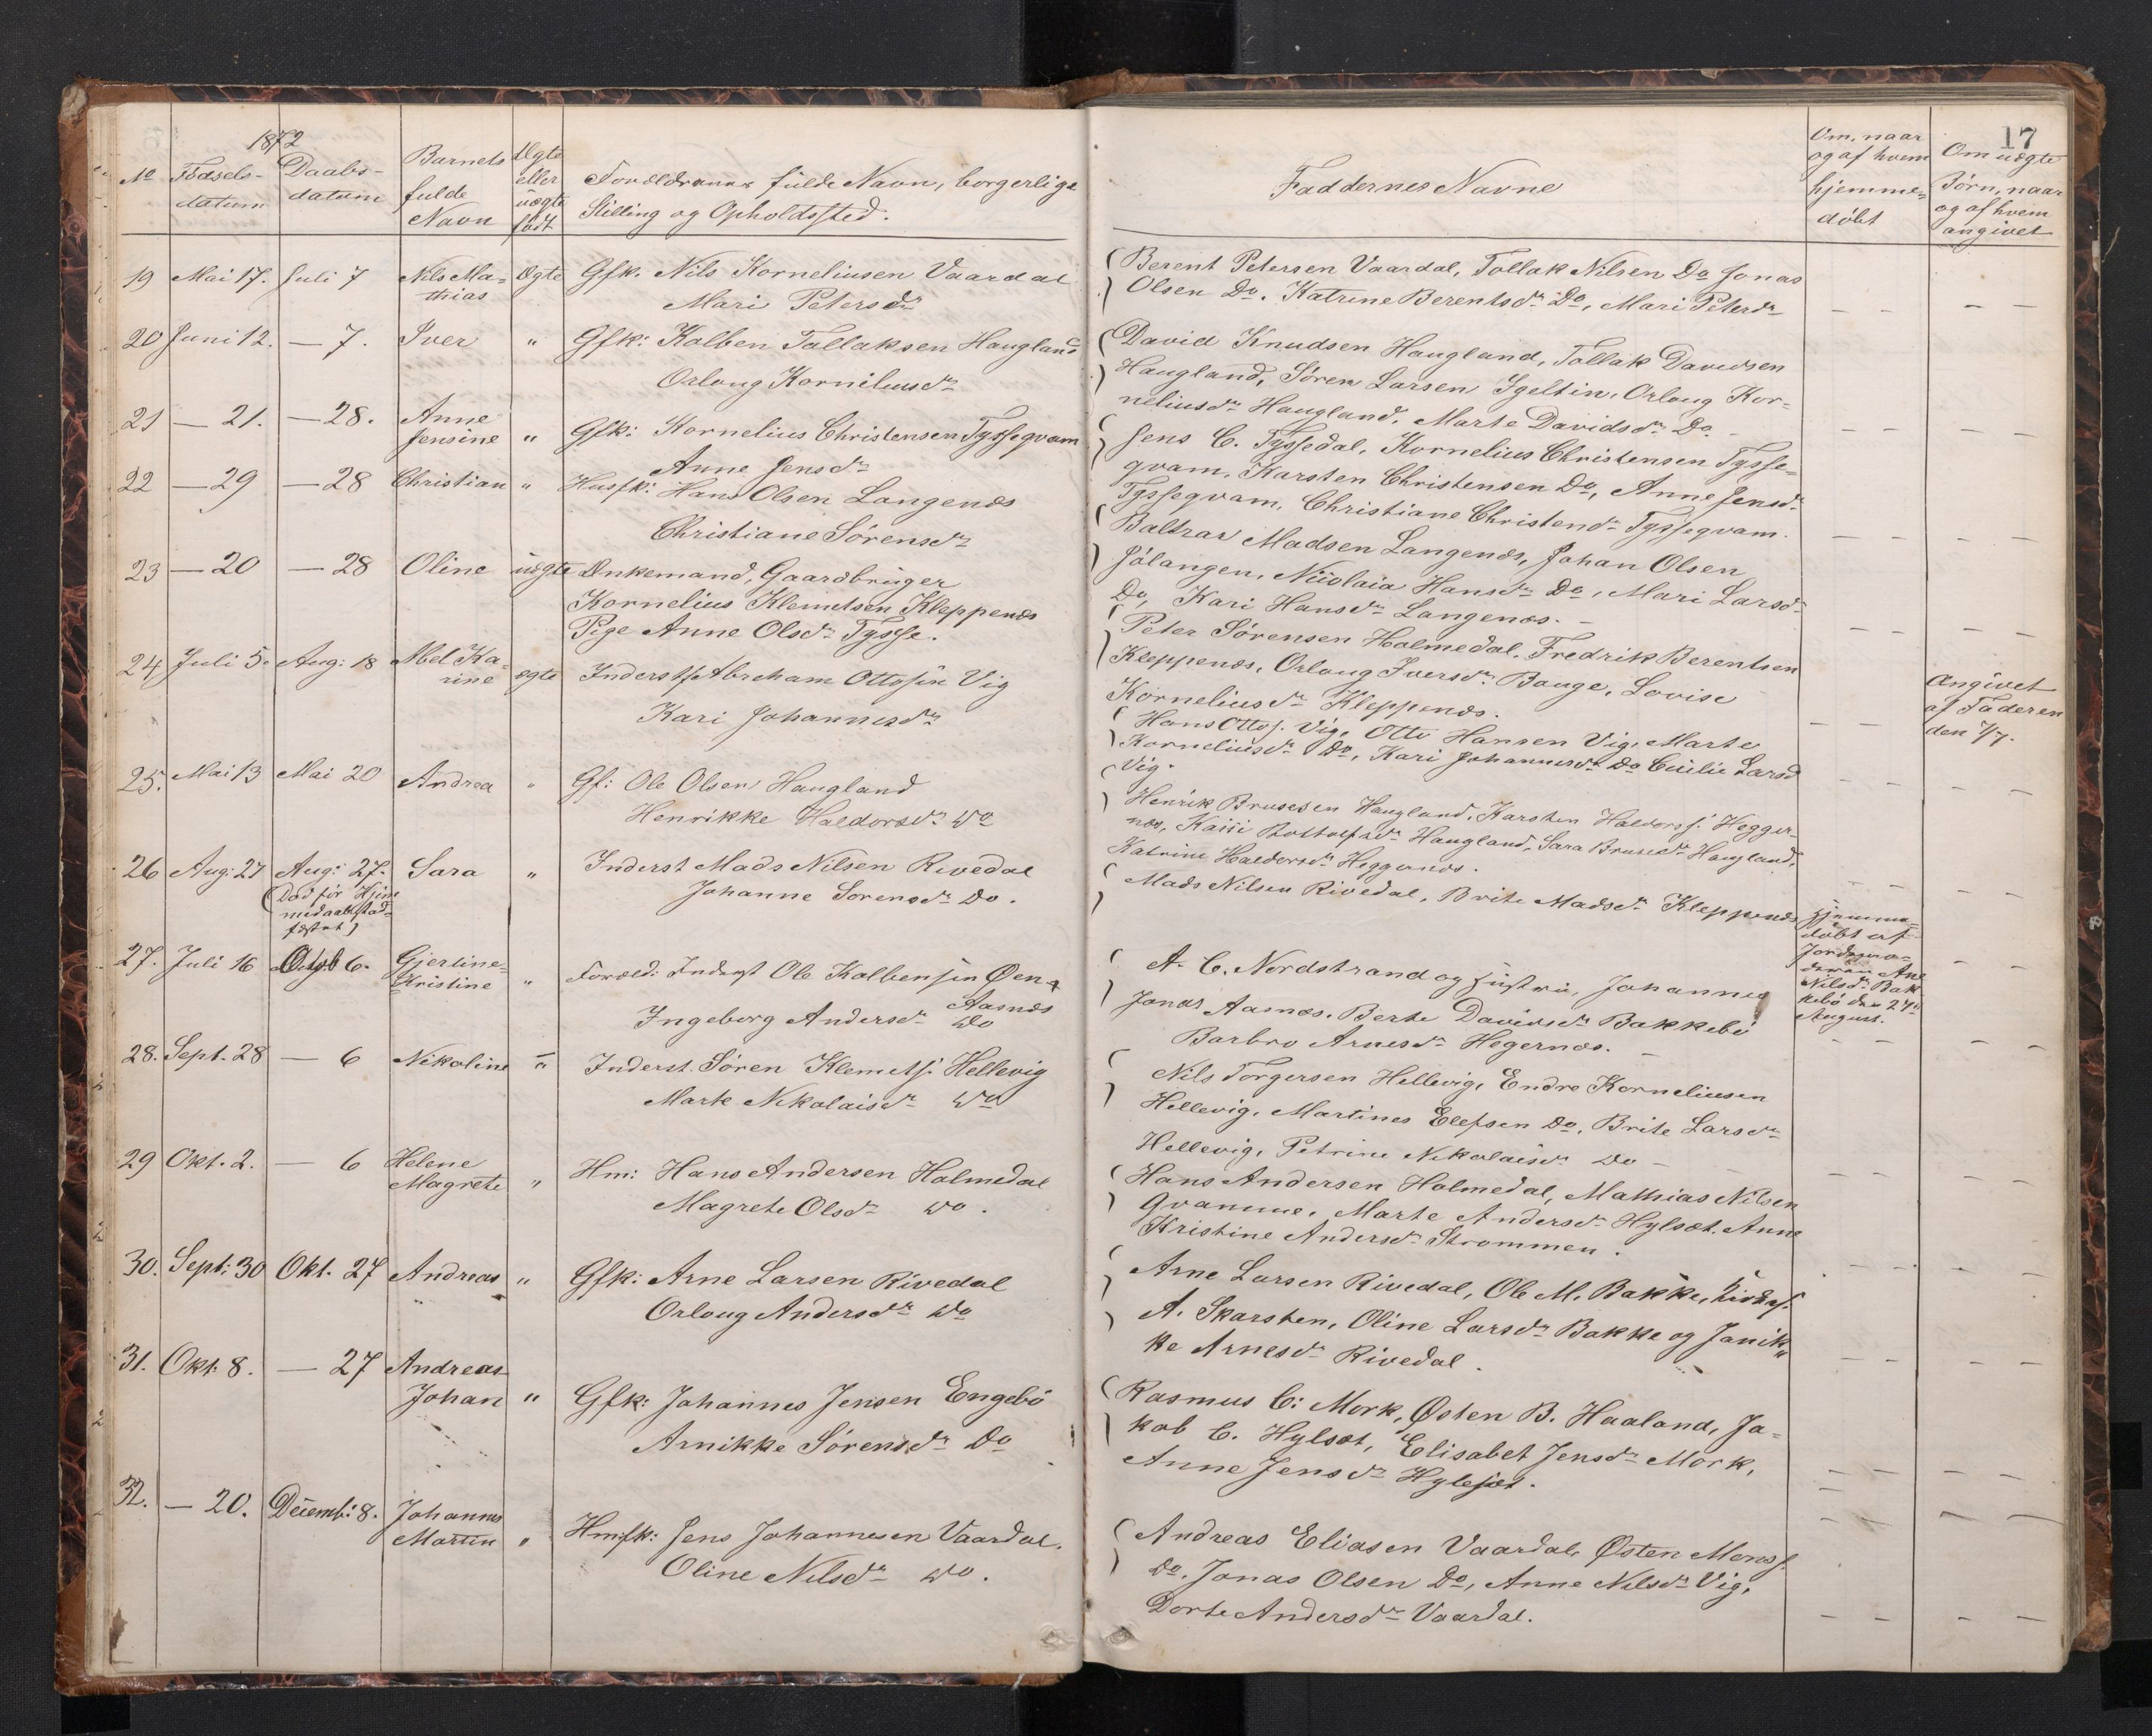 1872
17
No
Fødsels-
datum
Daabs-
datum
Barnets
fulde
Navn
Ægte
eller
uægte
født
Forældrenes fulde Navn, borgerlige
Stilling og Opholdssted.
Faddernes Navne
Om, naar
og af hvem
hjemme-
døbt
Om uægte
Børn, naar
og af hvem
angivet
19 Mai 17. Juli 7 Nils Ma- Ægte Gfk. Nils Korneliusen Vaardal
thias Mari Petersdr
Berent Petersen Vaardal, Tollak Nilsen Do Jonas
Olsen Do. Katrine Berentsdr Do, Mari Petersdr
20 Juni 12. — 7. Iver " Gfk: Kolben Tollaksen Haugland
Orloug Korneliusdr
David Knudsen Haugland, Tollak Davidsen
Haugland, Søren Larsen Igeltin, Orloug Kor-
neliusdr Haugland, Marte Davidsdr Do
21 — 21. — 28. Anne
Jensine " Gfk: Kornelius Christensen Tysseqvam
Anne Jensdr
Jens C. Tyssedal, Kornelius Christensen Tysse-
qvam, Karsten Christensen Do, Anne Jensdr
Tyssegvam, Christiane Christendr Tysseqvam.
22 — 29 — 28 Christian " Husfk: Hans Olsen Langenæs
Christiane Sørensdr
Baltzar Madsen Langenæs, Johan Olsen
Sølangen, Nicolaia Hansdr Do, Mari Larsdr
Do, Kari Hansdr Langenæs.
23 — 20 — 28 Oline uægte Enkemand, Gaardbruger
Kornelius Klemetsen Kleppenæs
Pige Anne Olsdr Tysse.
Peter Sørensen Holmedal, Fredrik Berentsen
Kleppenæs, Orloug Iversdr Bauge, Lovise
Korneliusdr Kleppenæs.
Angivet
af Faderen
den 7/7.
24 Juli 5. Aug: 18 Abel Ka-
rine ægte Inderstf Abraham Ottosen Vig
Kari Johannesdr
Hans Ottos. Vig, Otto Hansen Vig, Marte
Korneliusdr Do, Kari Johannesdr Do Cecilie Larsd
Vig.
25. Mai 13 Mai 20 Andrea " Gf: Ole Olsen Haugland
Henrikke Haldorsdr Do
Henrik Brusesen Haugland, Karsten Haldorss. Hegger-
næs, Kari Haugland, Sara Brusesdr Haugland,
Katrine Haldorsdr Heggernæs.
26 Aug: 27 Aug: 27. Sara " Inderst Mads Nilsen Rivedal
(Død før Hjem-
medaab stad-
fæstet)
Johanne Sorensdr Do.
Mads Nilsen Rivedal, Brite Madsdr Kleppenæs
Hjemme-
døbt af
Jordemo-
deren Ane
Nilsdr Bak
kebø den 27de
August.
27. Juli 16 Octob 6. Gjertine-
Kristine " Foræld: Inderst Ole Kolbensen Øen
Aasnæs
Ingeborg Andersdr Do
A. C. Nordstrand og Hustru, Johannes
Jonas Aasnæs, Berte Davidsdr Bakkebø
Barbro Arnesdr Hegernæs.
28. Sept. 28 — 6 Nikoline " Inderst. Søren Klemets: Hellevig
Marte Nikolaisdr Do
Nils Torgersen Hellevig, Endre Korneliusen
Hellevig, Martines Elefsen Do, Brite Larsdr
Hellevig, Petrine Nikolaisdr Do
29 Okt. 2. — 6 Helene
Magrete " Hm: Hans Andersen Holmedal
Magrete Olsdr Do.
Hans Andersen Holmedal, Mathias Nilsen
Qvamme, Marte Andersdr Hylsæt, Anne
Kristine Andersdr Strommen.
30. Sept: 30 Okt. 27 Andreas " Gfk: Arne Larsen Rivedal
Orloug Andersdr Do
Arne Larsen Rivedal, Ole M. Bakke,
A. Skarsten, Oline Larsdr Bakke og Janik-
ke Arnesdr Rivedal.
31. Okt: 8. — 27 Andreas
Johan " Gfk: Johannes Jensen Engebø
Arnikke Sørensdr Do
Rasmus C: Mork, Østen B. Haaland, Ja-
kob C. Hylsæt, Elisabet Jensdr Mork,
Anne Jensdr Hylesæt.
32. — 20. Decemb: 8. Johannes
Martin " Hmfk: Jens Johannesen Vaardal.
Oline Nilsdr Do.
Andreas Eliasen Vaardal, Østen Monss.
Do. Jonas Olsen Do, Anne Nilsdr Vig,
Dorte Andersdr Vaardal.